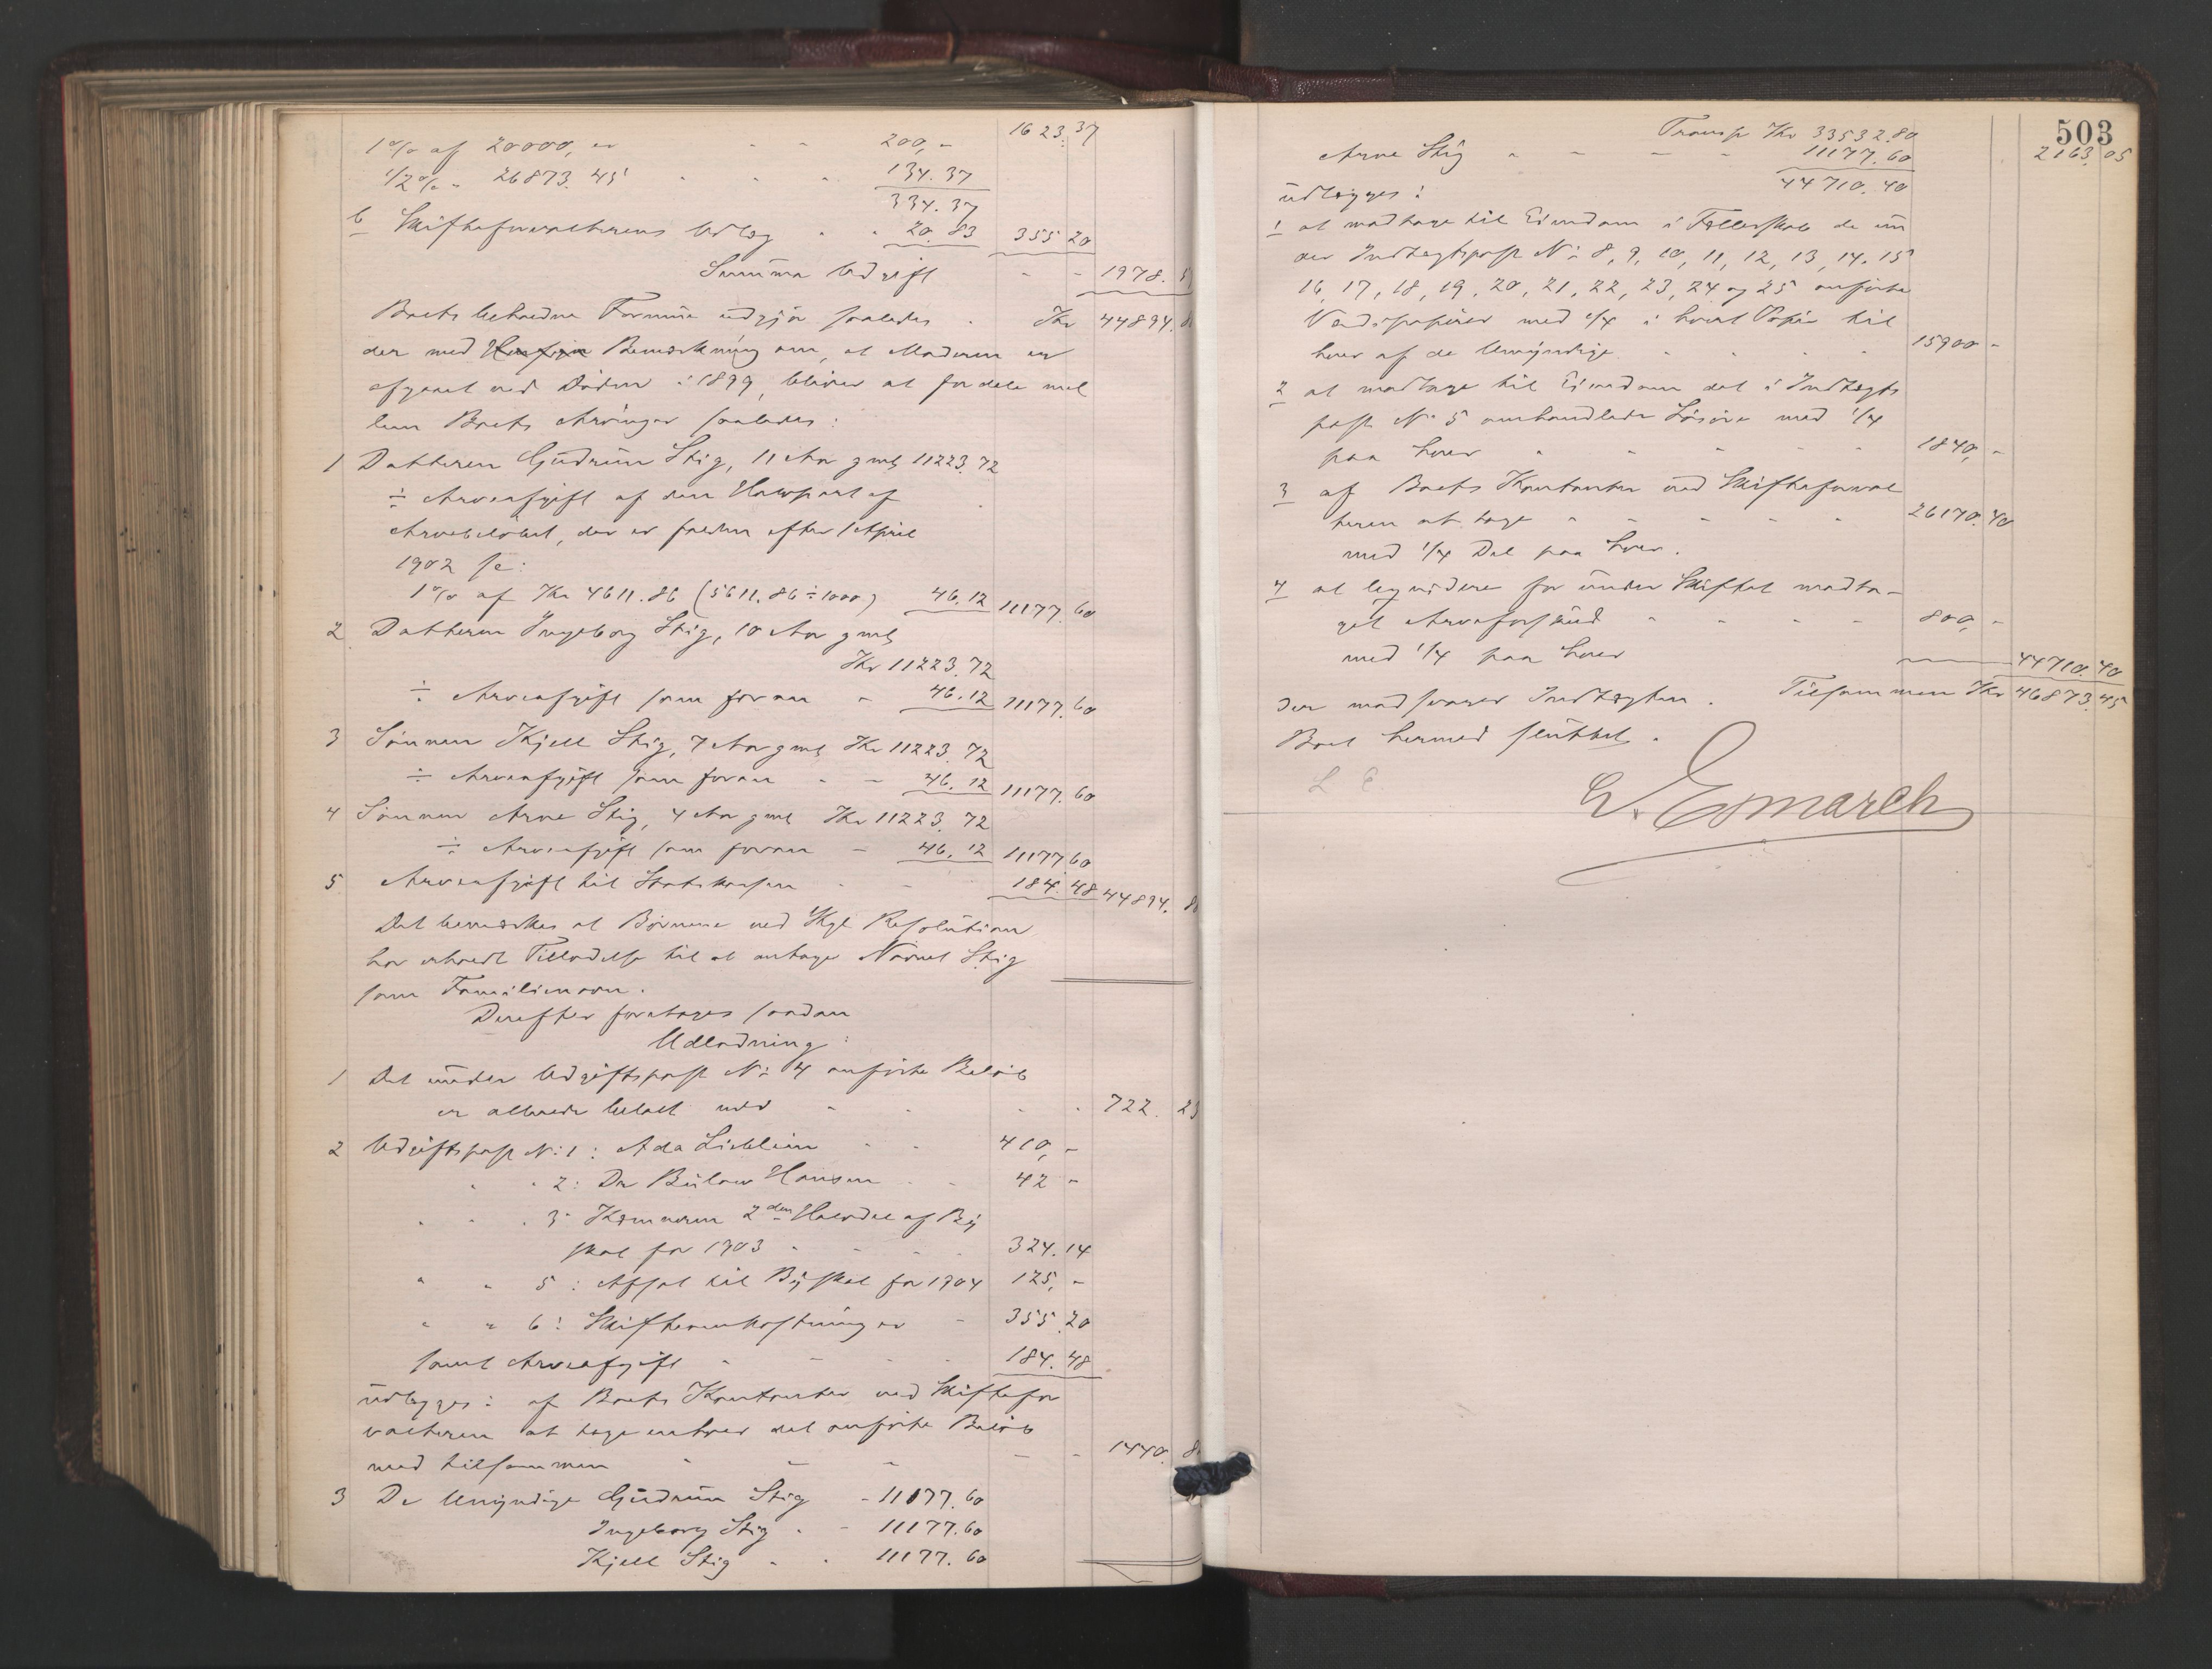 1623.37
1% af 20000, er - - 200, -
1/2% - 26873.45 - - - 134.37
334.37
b Skifteforvalterens Udlæg - - 20.83 355 20
Summa Udgift - - 1978.5
Boets beholdne Formue udgjør saaledes . Kr 44894.8
der med Bemærkning om, at Moderen er
afgaaet ved Døden i 1899, bliver at fordele mel
lem Boets Arvinger saaledes:
1 Datteren Gudrun Stig, 11 Aar gml 11223.72
÷ Arveafgift af den Halvpart af
Arvebeløbet, der er falden efter 1 April
1902 sc:
1% af Kr 4611.86 (5611.86 ÷ 1000) 46.12 11177.60
2 Datteren Ingeborg Stig, 10 Aar gml
Kr 11223.72
÷ Arveafgift som foran - 46.12 11177.60
3 Sønnen Kjell Stig, 7 Aar gml Kr 11223.72
÷ Arveafgift som foran - - 46.12 11177.60
4 Sønnen Arne Stig, 4 Aar gml Kr 11223.72
÷ Arveafgift som foran - 46.12 11177 60
5 Arveafgift til Statskassen - - 184.48 44894.8
Det bemærkes at Børnene ved Kgl Resolution
har erholdt Tilladelse til at antage Navnet Stig
som Familienavn.
Derefter foretages saadan
Udlodning:
1 Det under Udgiftspost No 4 anførte Beløb
er allerede betalt med - - - - 722.2
2 Udgiftspost No 1: Ada Lieblein - - 410, -
" " 2: Dr Bülow Hansen - - 42 -
" " 3: Kæmneren 2den Halvdel af By
skat for 1903 - - - 324.14
" " 5: Afsat til Byskat for 1904 125, -
" " 6: Skifteomkostninger - 355.20
samt Arveafgift - - - - 184.48
udlægges: af Boets Kontanter ved Skiftefor
valteren at tage enhver det anførte Beløb
med tilsammen - - - - - 1440.8
3 De Umyndige Gudrun Stig - 11177.60
Ingeborg Stig - - 11177.60
Kjell Stig - - 11177.60
503
Transp Kr 33532.80 2163.05
Arne Stig - - - - 11177.60
44710.40
udlægges:
1 at modtage til Eiendom i Fællesskab de un
der Indtægtspost No 8, 9, 10, 11, 12, 13, 14, 15
16, 17, 18, 19, 20, 21, 22, 23, 24 og 25 anførte
Værdipapirer med 1/4 i hvert Papir til
hver af de Umyndige - - - - 15900 -
2 at modtage til Eiendom det i Indtægts
post No 5 omhandlede Løsøre med 1/4
paa hver - - - - - 1840, -
3 af Boets Kontanter ved Skifteforval
teren at tage - - - - - 26170.40
med 1/4 Del paa hver.
4 at liqvidere for under Skiftet modta-
get Arveforskud - - - - 800, -
med 1/4 paa hver 44710.40
der modsvarer Indtægten. Tilsammen Kr 46873.45
Boet hermed sluttet.
L E
Esmarch